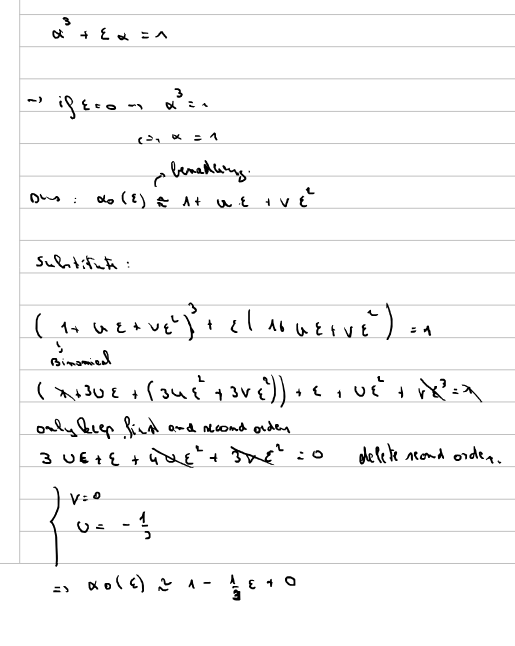 α³ + ε α = 1
→ if ε=0 → α³ = 1
<=> α = 1
↗ benadering.
Dus : α₀(ε) ≈ 1 + u ε + v ε²
Substitute :
(1 + u ε + v ε²)³ + ε(1 + u ε + v ε²) = 1
↳ Binomial
(1 + 3uε + (3uε² + 3vε²)) + ε + uε² + vε³ = 1
only keep first and second order
3uε + ε + 4uε² + 3vε² = 0 delete second order.
{ v = 0
u = - 1/3
=> α₀(ε) ≈ 1 - 1/3 ε + 0